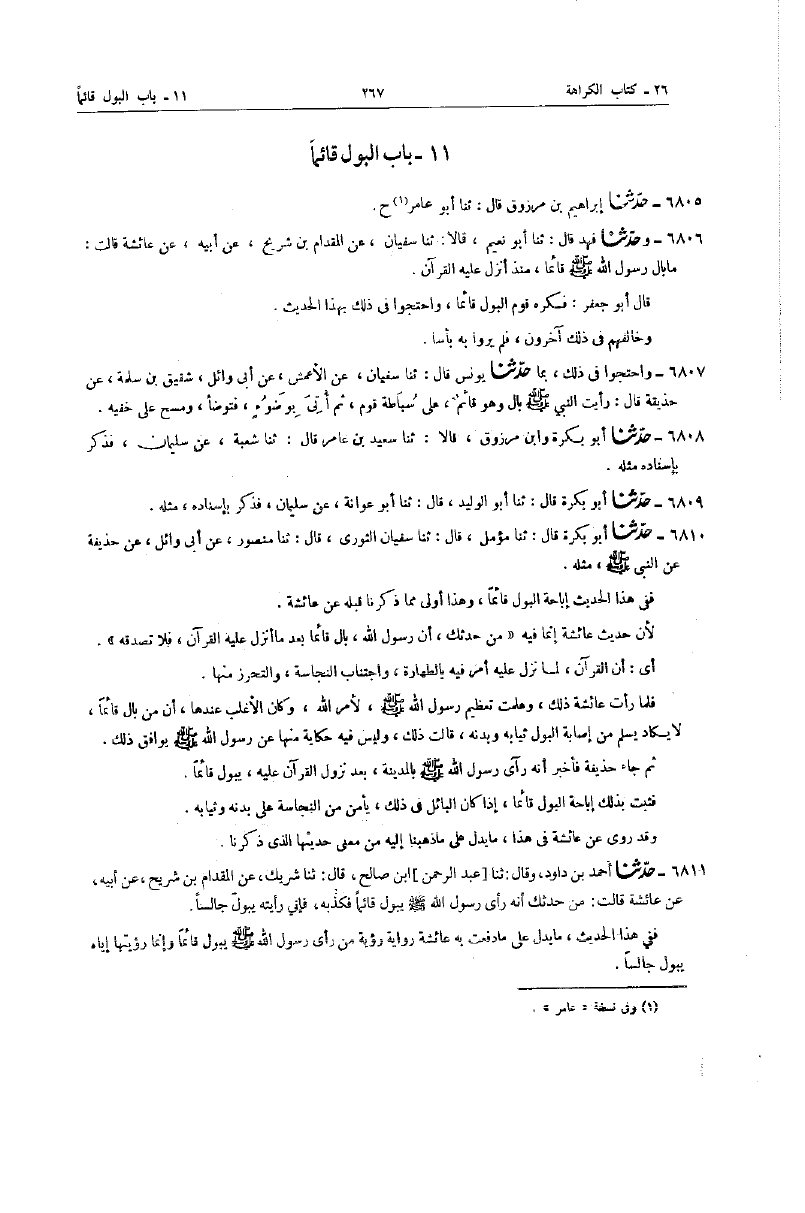 ٢٦ ـ كتاب الكراهة ٢٦٧ ١١ ـ باب البول قائماً
١١ ـ باب البول قائماً
٦٨٠٥ ـ حدّثنا إبراهيم بن مرزوق قال : ثنا أبو عامر(١) ح .
٦٨٠٦ ـ وحدّثنا فهد قال : ثنا أبو نعيم ، قالا : ثنا سفيان ، عن المقدام بن شريح ، عن أبيه ، عن عائشة قالت :
مابال رسول الله ﷺ قائما ، منذ أنزل عليه القرآن .
قال أبو جعفر : فكره قوم البول قائما ، واحتجوا فى ذلك بهذا الحديث .
وخالفهم فى ذلك آخرون ، فلم يروا به بأسا .
٦٨٠٧ ـ واحتجوا فى ذلك ، بما حدّثنا يونس قال : ثنا سفيان ، عن الأعمش ، عن أبى وائل ، شقيق بن سلمة ، عن
حذيفة قال : رأيت النبي ﷺ بال وهو قائم ، على سُباطة قوم ، ثم أُتِىَ بِوَضُوءٍ ، فتوضأ ، ومسح على خفيه .
٦٨٠٨ ـ حدّثنا أبو بكرة وابن مرزوق ، قالا : ثنا سعيد بن عامر قال : ثنا شعبة ، عن سليمان ، فذكر
بإسناده مثله .
٦٨٠٩ ـ حدّثنا أبو بكرة قال : ثنا أبو الوليد ، قال : ثنا أبو عوانة ، عن سليمان ، فذكر بإسناده ، مثله .
٦٨١٠ ـ حدّثنا أبو بكرة قال : ثنا مؤمل ، قال : ثنا سفيان الثورى ، قال : ثنا منصور ، عن أبى وائل ، عن حذيفة
عن النبي ﷺ ، مثله .
ففى هذا الحديث إباحة البول قائما ، وهذا أولى مما ذكرنا قبله عن عائشة .
لأن حديث عائشة إنما فيه « من حدثك ، أن رسول الله ، بال قائما بعد ماأنزل عليه القرآن ، فلا تصدقه » .
أى : أن القرآن ، لما نزل عليه أمر فيه بالطهارة ، واجتناب النجاسة ، والتحرز منها .
فلما رأت عائشة ذلك ، وعلمت تعظيم رسول الله ﷺ ، لأمر الله ، وكان الأغلب عندها ، أن من بال قائماً ،
لايكاد يسلم من إصابة البول ثيابه وبدنه ، قالت ذلك ، وليس فيه حكاية منها عن رسول الله ﷺ يوافق ذلك .
ثم جاء حذيفة فأخبر أنه رأى رسول الله ﷺ بالمدينة ، بعد نزول القرآن عليه ، يبول قائماً .
فثبت بذلك إباحة البول قائما ، إذا كان البائل فى ذلك ، يأمن من النجاسة على بدنه وثيابه .
وقد روى عن عائشة فى هذا ، مايدل على ماذهبنا إليه من معنى حديثها الذى ذكرنا .
٦٨١١ ـ حدّثنا أحمد بن داود، وقال: ثنا [عبد الرحمن] ابن صالح ، قال: ثنا شريك، عن المقدام بن شريح، عن أبيه،
عن عائشة قالت: من حدثك أنه رأى رسول الله ﷺ يبول قائماً فكذبه، فإني رأيته يبول جالساً.
ففي هذا الحديث ، مايدل على مادفعت به عائشة رواية رؤية من رأى رسول الله ﷺ يبول قائماً وإنما رؤيتها إياه
يبول جالساً .
(١) وفى نسخة « عامر » .